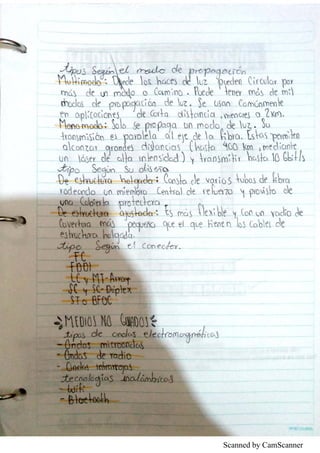 tipos Según el modo de propagación
Multimodo: Donde los haces de luz pueden Circular por
más de un modo o Camino. Puede tener más de mil
modos de propagación de luz. Se usan Comúnmente
en aplicaciones de Corta distancia, menores a 2km.
Monomodo: Solo se propaga un modo de luz. Su
transmisión es paralela al eje de la fibra. Estos permiten
alcanzar grandes distancias (hasta 400 km, mediante
un láser de alta intensidad) y transmitir hasta 10 Gbit/s
tipo Según Su diseño
De estructura holgada: Consta de varios tubos de fibra
rodeando un miembro Central de refuerzo y provisto de
una Cubierta protectora.
De estructura ajustada: Es más flexible y con un radio de
Curvatura más pequeño que el que tienen los Cables de
estructura holgada.
tipo Según el conector.
FC
FDDI
LC y MT-Array
SC y SC-Dúplex
ST o BFOC
MEDIOS NO GUIADOS
tipos de ondas electromagnéticas
- Ondas microondas
- Ondas de radio
- Ondas infrarrojas
tecnologías inalámbricas
- Wifi
- Bluetooth
Scanned by CamScanner